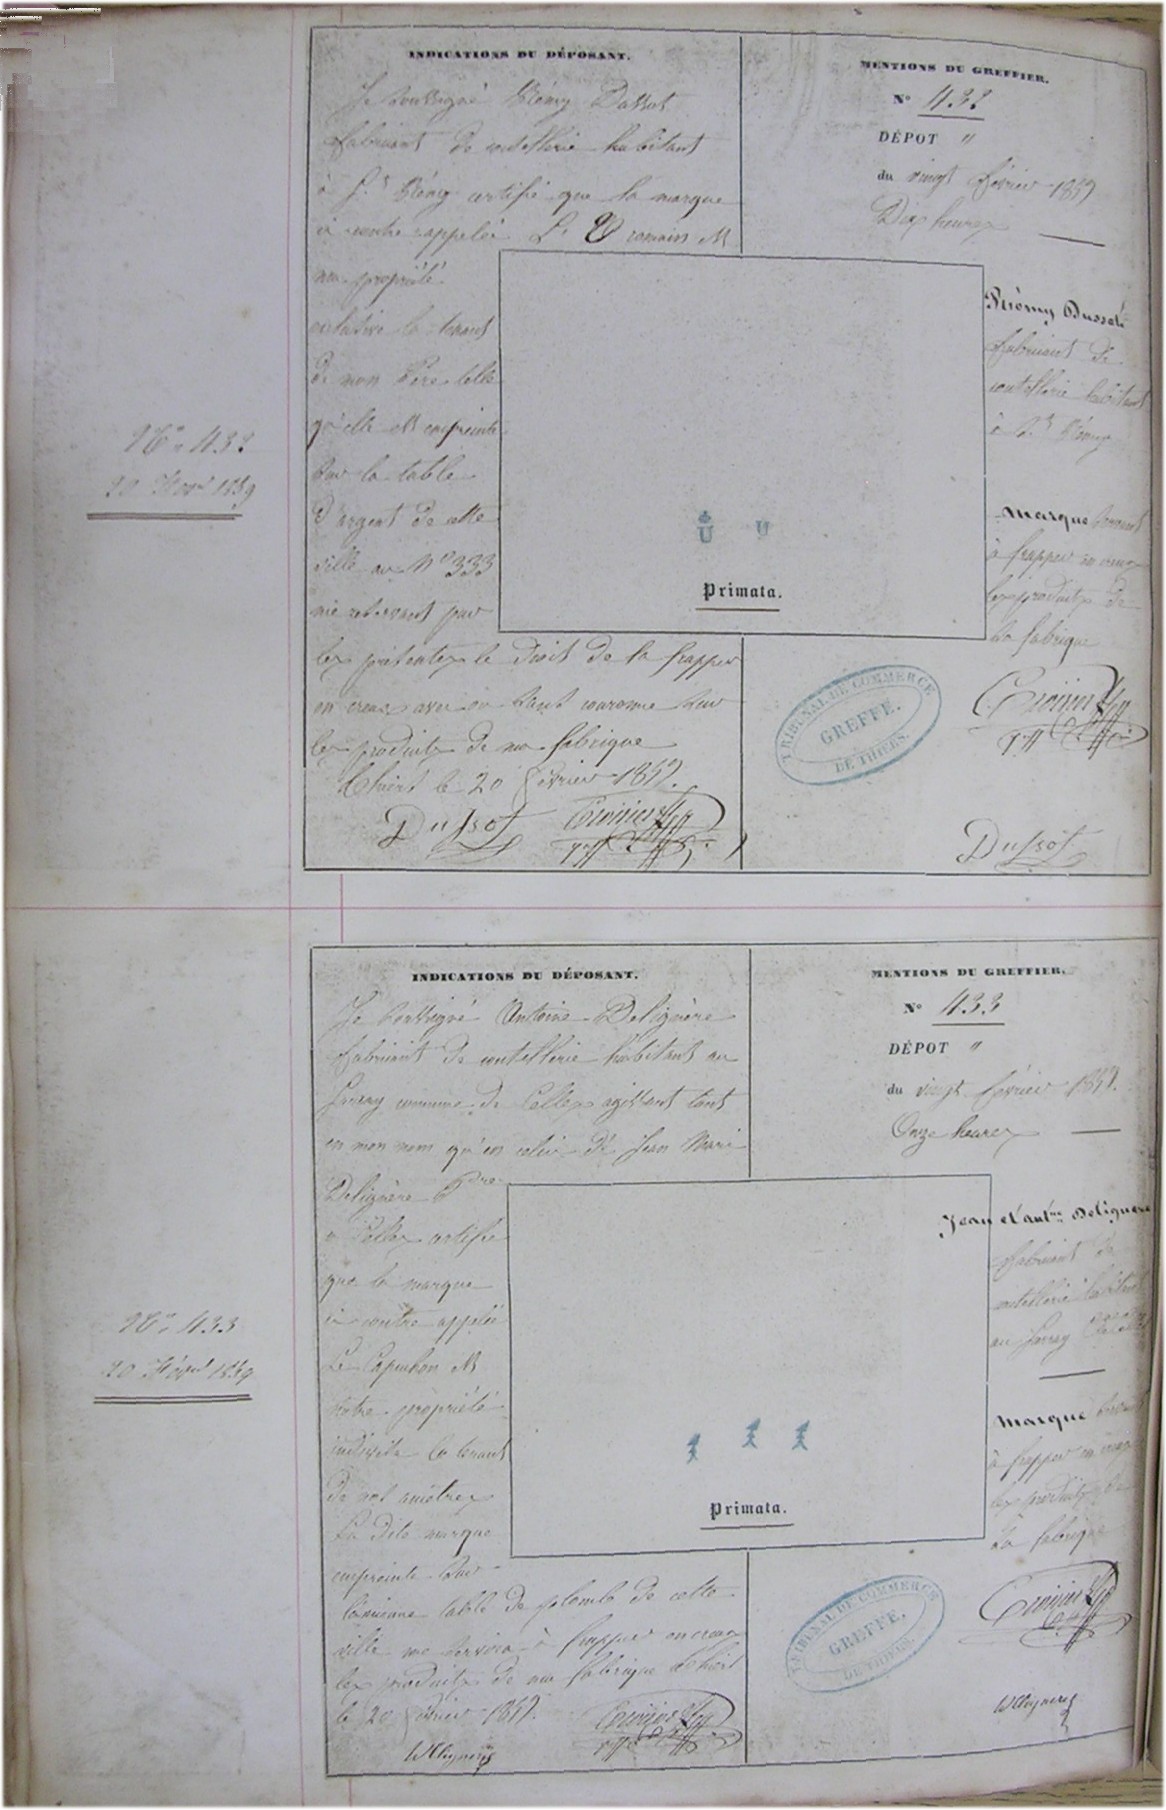 INDICATIONS DU DÉPOSANT.
Je soussigné Rémy Dussot
fabricant de coutellerie habitant
à St Rémy certifie que la marque
ci contre appelée L'U romain est
ma propriété
exclusive la tenant
de mon Père telle
qu'elle est empreinte
sur la table
d'argent de cette
ville au N° 333
me réservant par
les présentes le droit de la frapper
en creux avec ou sans couronne sur
les produits de ma fabrique
Thiers le 20 février 1859.
Dussot
MENTIONS DU GREFFIER.
N° 432
DÉPOT "
du vingt février 1859
Dix heures
Rémy Dussot
fabricant de
coutellerie habitant
à St Rémy
Marque servant
à frapper en creux
les produits de
sa fabrique
Dussot
U U
Primata.
TRIBUNAL DE COMMERCE
GREFFE.
DE THIERS.
N° 432
20 Févr 1859
INDICATIONS DU DÉPOSANT.
Je soussigné Antoine Delignère
fabricant de coutellerie habitant au
commune de Celles agissant tant
en mon nom qu'en celui de Jean Marie
Delignère
à Celles certifie
que la marque
ci contre appelée
Le Capuchon est
notre propriété
indivise la tenant
de nos ancêtres
La dite marque
empreinte sur
l'ancienne table de plomb de cette
ville me servira à frapper en creux
les produits de ma fabrique Thiers
le 20 février 1859.
MENTIONS DU GREFFIER.
N° 433
DÉPOT "
du vingt février 1859.
Onze heures
Jean et antne Delignère
fabricant de
coutellerie habitant
au
Marque servant
à frapper en creux
les produits de
sa fabrique
Primata.
TRIBUNAL DE COMMERCE
GREFFE.
DE THIERS.
N° 433
20 Févr 1859